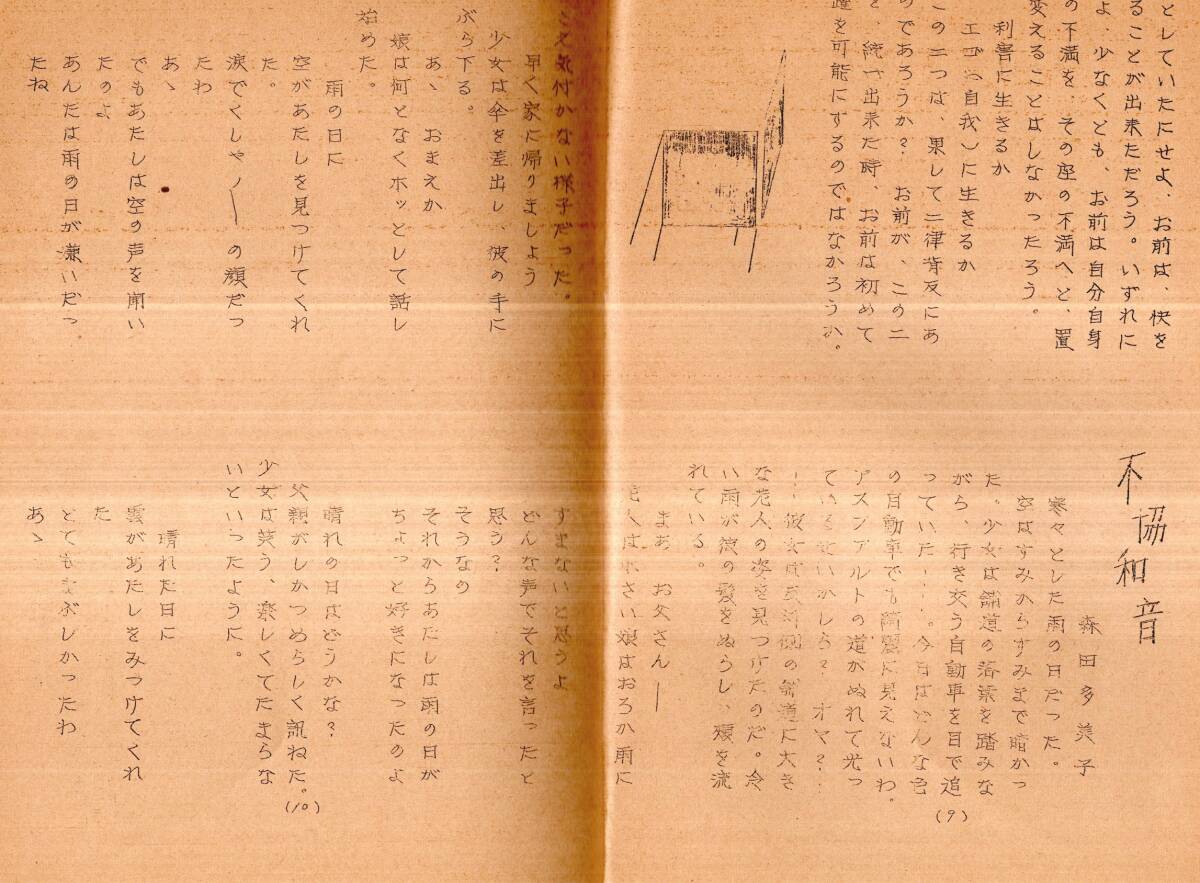 としていたにせよ、お前は、快を
ることが出来ただろう。いずれに
よ、少なくとも、お前は自分自身
の不満を、その座の不満へと、置
変えることはしなかったろう。
利害に生きるか
エゴ(自我)に生きるか
この二つは、果して二律背反にあ
のであろうか? お前が、この二
を、統一出来た時、お前は初めて
躍を可能にするのではなかろうか。
不協和音
森田多美子
寒々とした雨の日だった。
空はすみからすみまで暗かっ
た。少女は舗道の落葉を踏みな
がら 行き交う自動車を目で追
っていた・・・。今日はどんな色
の自動車でも綺麗に見えないわ。
アスファルトの道がぬれて光っ
ているせいかしら? オヤ?・・
・・彼女は反対側の舗道に大き
な老人の姿を見つけたのだ。冷
い雨が彼の髪をぬらし、頬を流
れている。
まあ お父さん―
老人は小さい娘はおろか雨に
(9)
さえ気付かない様子だった。
早く家に帰りましよう
少女は傘を差出し、彼の手に
ぶら下る。
あゝ おまえか
娘は何となくホッとして話し
始めた。
雨の日に
空があたしを見つけてくれ
た。
涙でくしゃ/\―の顔だっ
たわ
あゝ
でもあたしは空の声を聞い
たのよ
あんたは雨の日が嫌いだっ
たね
すまないと思うよ
どんな声でそれを言ったと
思う?
そうなの
それからあたしは雨の日が
ちょっと好きになったのよ
晴れの日はどうかな?
父親がしかつめらしく訊ねた。
少女は笑う、楽しくてたまらな
いといったように。
晴れた日に
雲があたしをみつけてくれ
た
とてもまぶしかったわ
あゝ
(10)